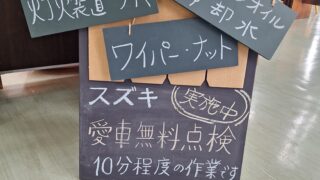 灯火装置
オイル
冷却水
ワイパー・ナット
スズキ
実施中
愛車無料点検
10分程度の作業です